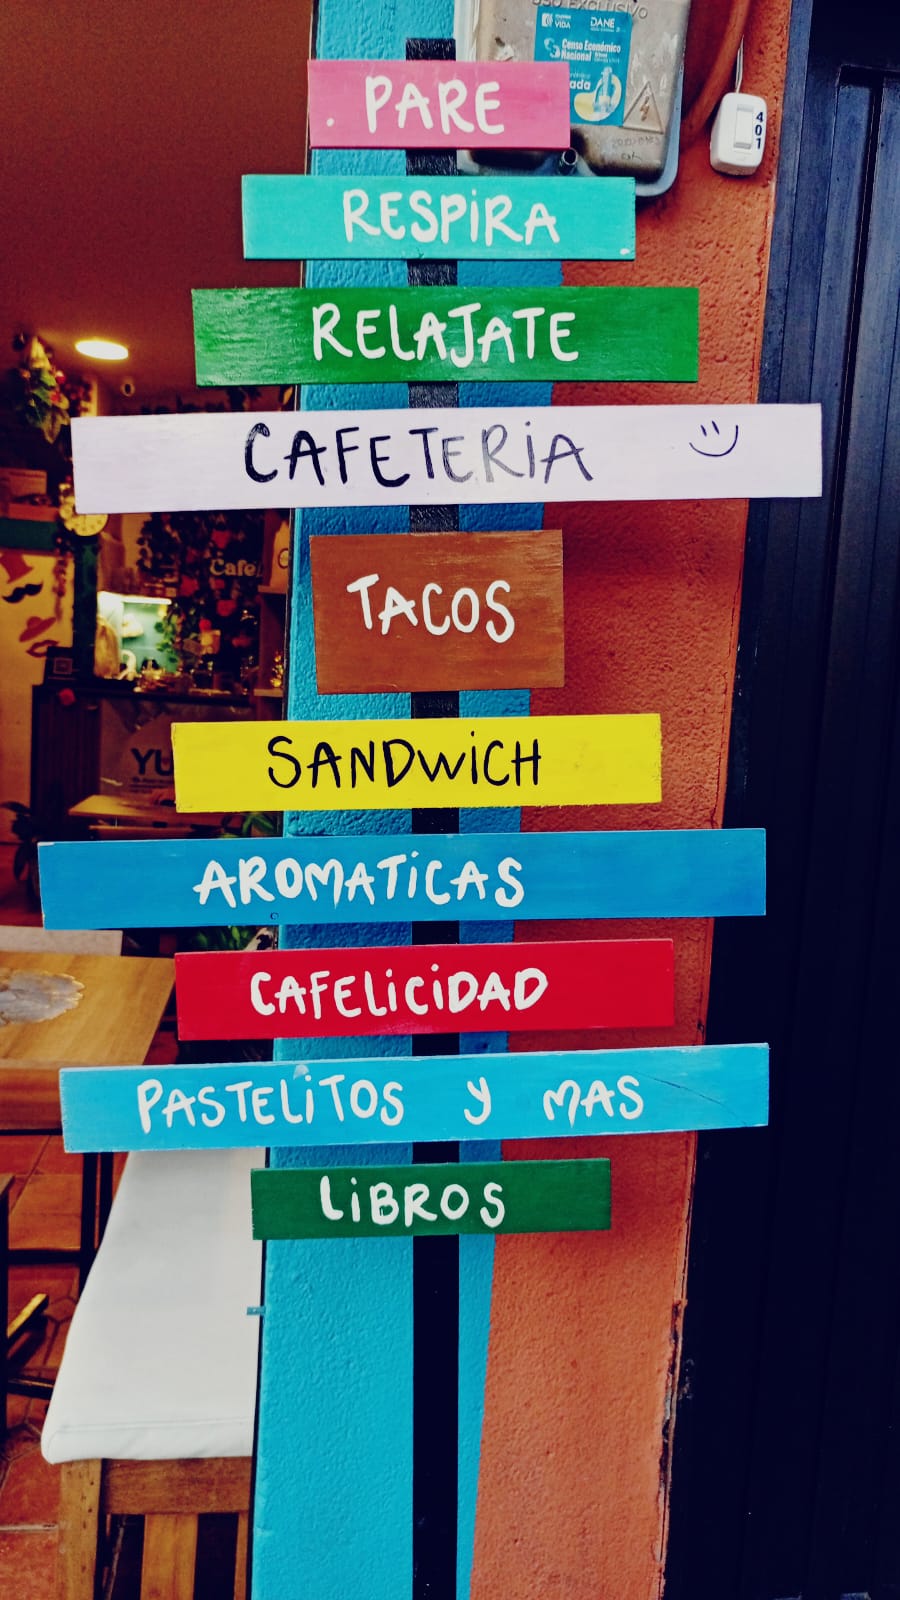 USO EXCLUSIVO
VIDA
DANE
Censo Económico
Nacional
. PARE
401
RESPIRA
RELAJATE
CAFETERIA
Cafe
TACOS
YU
SANDWICH
AROMATICAS
CAFELICIDAD
PASTELITOS Y MAS
LIBROS